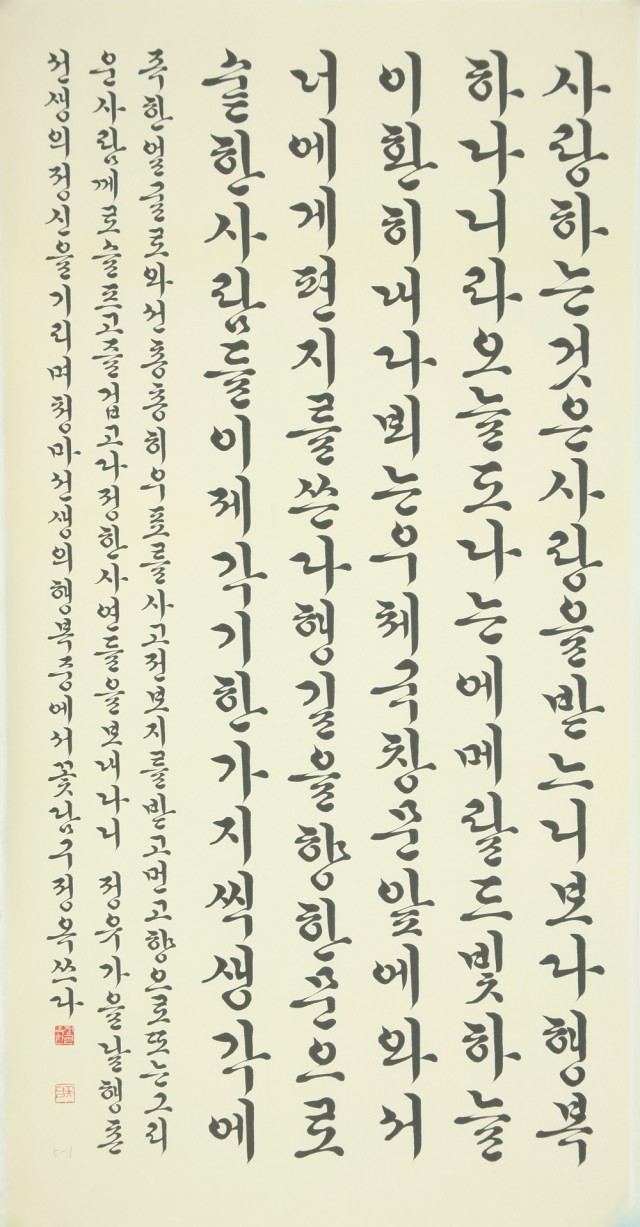 사랑하는것은사랑을받느니보다행복
하나니라오늘도나는에메랄드빛하늘
이환히내다뵈는우체국창문앞에와서
너에게편지를쓴다행길을향한문으로
숱한사람들이제각기한가지씩생각에
족한얼굴로와선총총히우표를사고전보지를받고먼고향으로또는그리
운사람께로슬프고즐겁고다정한사연들을보내나니 정유가을날행촌
선생의정신을기리며청마선생의행복중에서꽃담구정옥쓰다